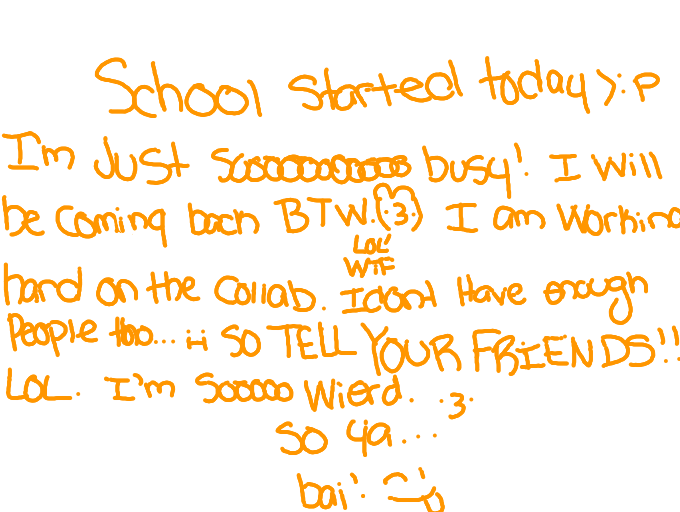 School started today >:P
I'm Just Sooooooooooo busy! I will
be coming back BTW. (.3.) I am working
LOL!
WTF
hard on the collab. I dont Have enough
People tho... ;-; SO TELL YOUR FRIENDS!!
LOL. I'm Sooooo Wierd. .3.
So ya...
bai! :P